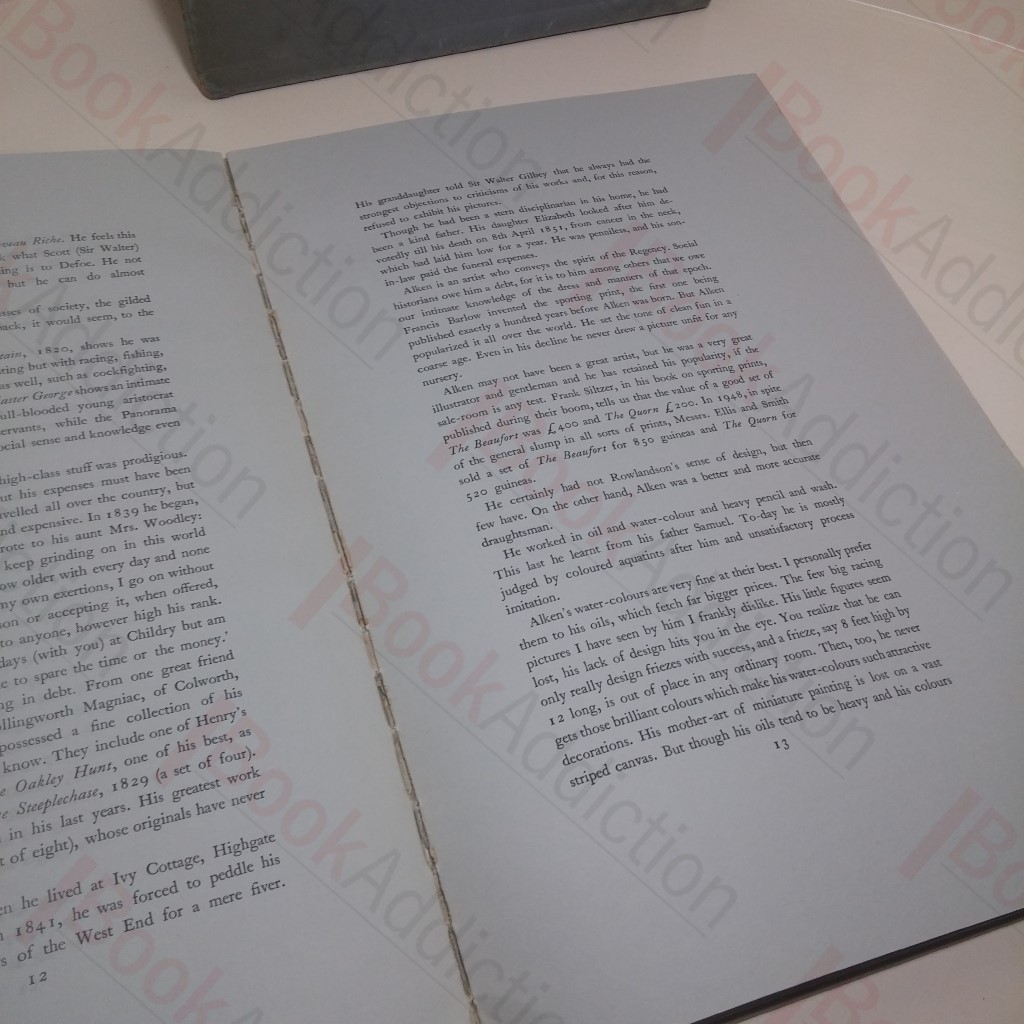 oveau Riche. He feels this
what Scott (Sir Walter)
ing is to Defoe. He not
but he can do almost
sses of society, the gilded
back, it would seem, to the
tain, 1820, shows he was
ting but with racing, fishing,
as well, such as cockfighting,
aster George shows an intimate
ull-blooded young aristocrat
servants, while the Panorama
ocial sense and knowledge even
high-class stuff was prodigious.
ut his expenses must have been
velled all over the country, but
nd expensive. In 1839 he began,
rote to his aunt Mrs. Woodley:
keep grinding on in this world
ow older with every day and none
my own exertions, I go on without
son or accepting it, when offered,
to anyone, however high his rank.
days (with you) at Childry but am
e to spare the time or the money.'
ng in debt. From one great friend
ollingworth Magniac, of Colworth,
possessed a fine collection of his
know. They include one of Henry's
e Oakley Hunt, one of his best, as
e Steeplechase, 1829 (a set of four).
in his last years. His greatest work
t of eight), whose originals have never
en he lived at Ivy Cottage, Highgate
n 1841, he was forced to peddle his
s of the West End for a mere fiver.
12
His granddaughter told Sir Walter Gilbey that he always had the
strongest objections to criticisms of his works and, for this reason,
refused to exhibit his pictures.
Though he had been a stern disciplinarian in his home, he had
been a kind father. His daughter Elizabeth looked after him de-
votedly till his death on 8th April 1851, from cancer in the neck,
which had laid him low for a year. He was penniless, and his son-
in-law paid the funeral expenses.
Alken is an artist who conveys the spirit of the Regency. Social
historians owe him a debt, for it is to him among others that we owe
our intimate knowledge of the dress and manners of that epoch.
Francis Barlow invented the sporting print, the first one being
published exactly a hundred years before Alken was born. But Alken
popularized it all over the world. He set the tone of clean fun in a
coarse age. Even in his decline he never drew a picture unfit for any
nursery.
Alken may not have been a great artist, but he was a very great
illustrator and gentleman and he has retained his popularity, if the
sale-room is any test. Frank Siltzer, in his book on sporting prints,
published during their boom, tells us that the value of a good set of
The Beaufort was £400 and The Quorn £200. In 1948, in spite
of the general slump in all sorts of prints, Messrs. Ellis and Smith
sold a set of The Beaufort for 850 guineas and The Quorn for
520 guineas.
He certainly had not Rowlandson's sense of design, but then
few have. On the other hand, Alken was a better and more accurate
draughtsman.
He worked in oil and water-colour and heavy pencil and wash.
This last he learnt from his father Samuel. To-day he is mostly
judged by coloured aquatints after him and unsatisfactory process
imitation.
Alken's water-colours are very fine at their best. I personally prefer
them to his oils, which fetch far bigger prices. The few big racing
pictures I have seen by him I frankly dislike. His little figures seem
lost, his lack of design hits you in the eye. You realize that he can
only really design friezes with success, and a frieze, say 8 feet high by
12 long, is out of place in any ordinary room. Then, too, he never
gets those brilliant colours which make his water-colours such attractive
decorations. His mother-art of miniature painting is lost on a vast
striped canvas. But though his oils tend to be heavy and his colours
13